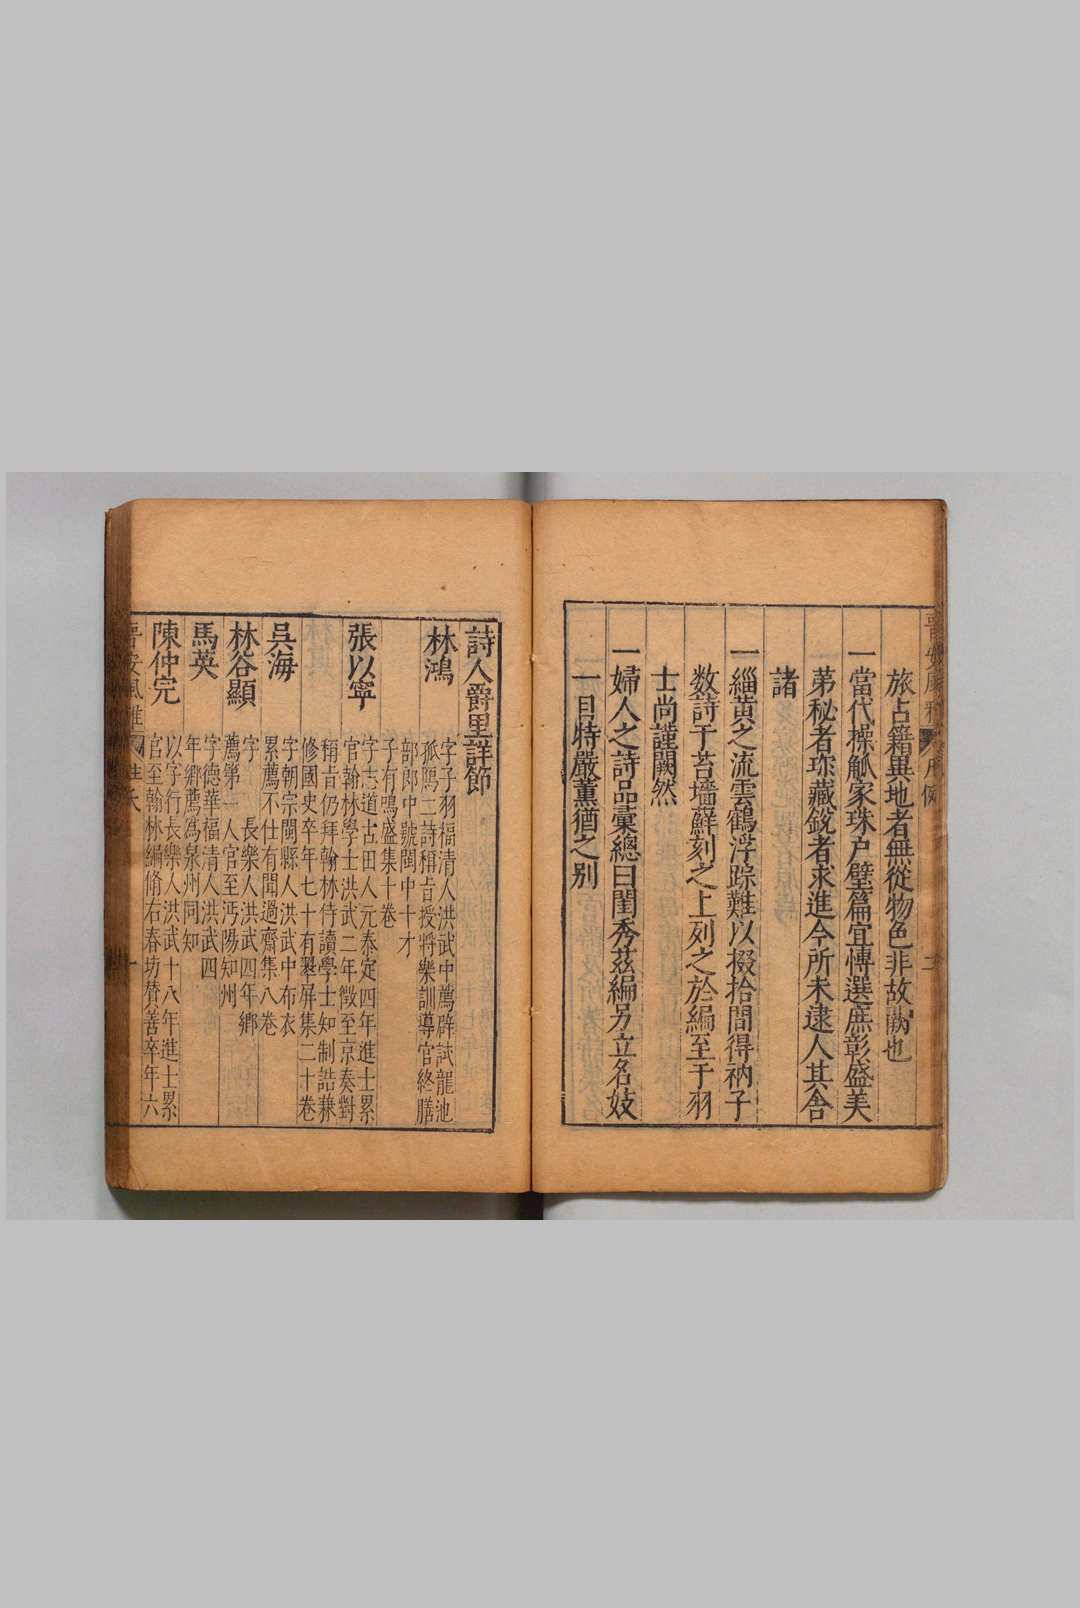 旅占籍異地者無從物色非故漏也
一當代操觚家珠戶璧篇宜慱選庶彰盛美
苐秘者琛藏銳者求進今所未逮人其舍
諸
一緇黃之流雲鶴浮踪難以掇拾間得衲子
数詩于苔墻蘚刻之上列之於編至于羽
士尚謹闕然
一婦人之詩品彙總曰閨秀茲編另立名妓
一目特嚴薰猶之别
詩人爵里詳節
林鴻
字子羽福清人洪武中薦辟試龍池
狐鴈二詩稱旨授將樂訓導官終膳
部郎中號閩中十才
子有鳴盛集十卷
張以寧
字志道古田人元泰定四年進士累
官翰林學士洪武二年徵至京奏對
稱旨仍拜翰林侍讀學士知制誥兼
修國史卒年七十有翠屏集二十卷
吳海
字朝宗閩縣人洪武中布衣
累薦不仕有聞過齋集八卷
林谷顯
字 長樂人洪武四年鄉
薦第一人官至沔陽知州
馬英
字德華福清人洪武四
年鄉薦爲泉州同知
陳仲完
以字行長樂人洪武十八年進士累
官至翰林編脩右春坊賛善卒年六
晋安風雅
姓氏
一